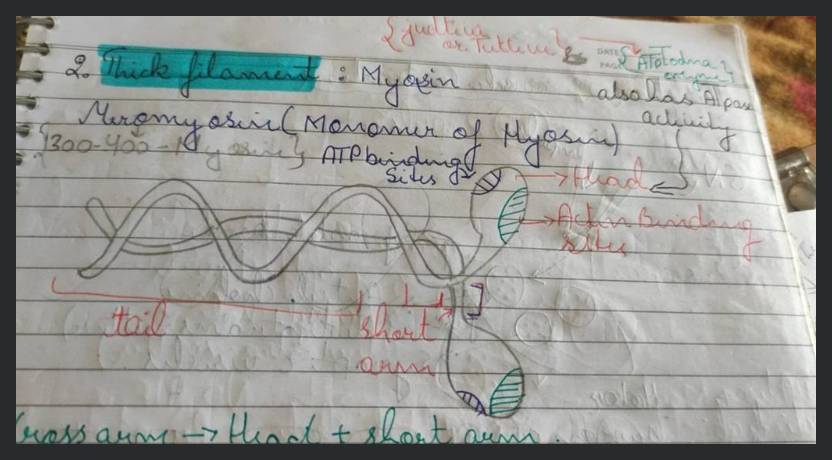 2. Thick filament : Myosin
{ATP todna enzyme}
also has ATpase activity
Meromyosin (Monomer of Myosin)
{300-400 - Myosine}
ATP binding Sites
Head
Actin Binding sites
tail
short arm
Cross arm → Head + short arm.